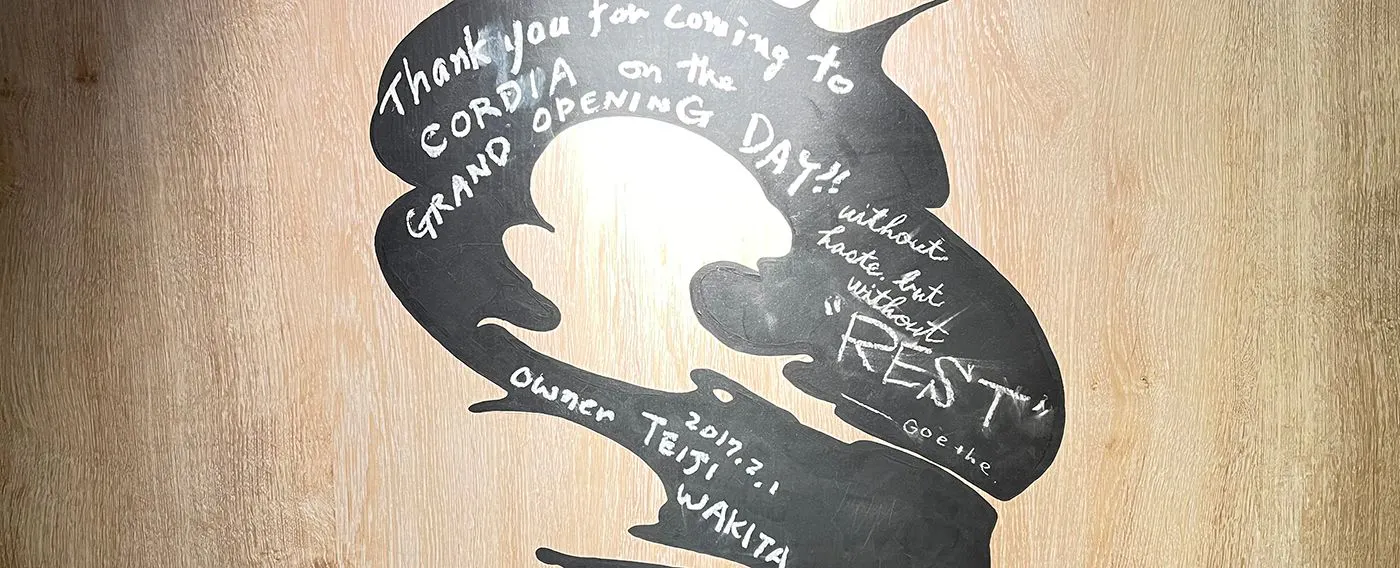 Thank you for coming to
CORDIA on the
GRAND OPENING DAY!!
without
haste, but
without
"REST"
— Goethe.
2017.2.1
owner TEIJI
WAKITA